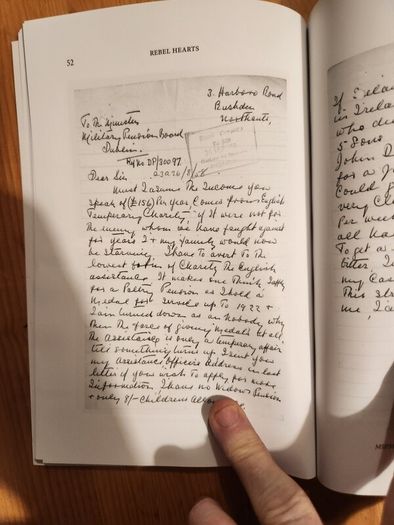 52
REBEL HEARTS
3. Harboro Road
Rushden
Northants.
To The Minister
Military Pension Board
Dublin.
Ref No DP/30097
Dear Sir
Must I assume The Income you
speak of (£156) Per Year Comes from English
Temporary Charity. if it were not for
the enemy whom we have fought against
for years I & my family would now
be starving. I have to avert to the
lowest form of Charity The English
assistance. It makes one think I apply
for a Paltry Pension as I hold a
medal for service up to 1922 &
I am turned down as an nobody why
then the farce of giving medals at all.
The assistance is only a temporary affair
till something turns up. I sent you
my assistance Officers address in last
letter if you wish to apply for more
Information. I have no Widows Pension
& only 8/- childrens
If I
in Irelan
who di
5-8
John D
for a J
Could g
very C
Per week
all ha
To get a
letter. I
my Cas
This Str
me, I a